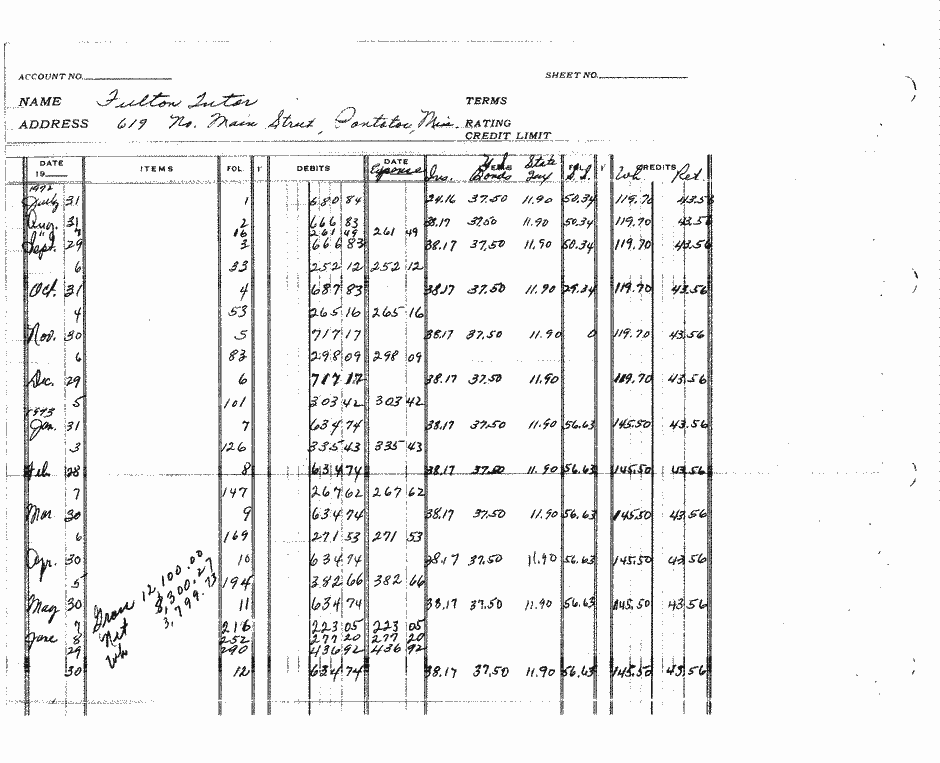 ACCOUNT NO. SHEET NO.
NAME Fulton Tutor TERMS
ADDRESS 619 No. Main Street, Pontotoc, Miss. RATING
CREDIT LIMIT
DATE 19 ITEMS FOL. DEBITS DATE Expense Ins. U.S. Bonds State Tax S.S. CREDITS Wh Ret.
1972
July 31 1 680 84 24.16 37.50 11.90 50.34 119.70 43.56
Aug. 31 2 666 83 38.17 37.50 11.90 50.34 119.70 43.56
16 261 49 261 49
Sept. 29 3 666 83 38.17 37.50 11.90 50.34 119.70 43.56
6 33 252 12 252 12
Oct. 31 4 687 83 38.17 37.50 11.90 29.34 119.70 43.56
4 53 265 16 265 16
Nov. 30 5 717 17 38.17 37.50 11.90 0 119.70 43.56
6 83 298 09 298 09
Dec. 29 6 717 17 38.17 37.50 11.90 119.70 43.56
5 101 303 42 303 42
1973
Jan. 31 7 634 74 38.17 37.50 11.90 56.63 145.50 43.56
3 126 335 43 335 43
Feb 28 8 634 74 38.17 37.50 11.90 56.63 145.50 43.56
7 147 267 62 267 62
Mar 30 9 634 74 38.17 37.50 11.90 56.63 145.50 43.56
6 169 271 53 271 53
Apr. 30 10 634 74 38.17 37.50 11.90 56.63 145.50 43.56
5 194 382 66 382 66
May 30 11 634 74 38.17 37.50 11.90 56.63 145.50 43.56
7 216 223 05 223 05
June 8 252 277 20 277 20
29 290 436 92 436 92
30 12 634 74 38.17 37.50 11.90 56.63 145.50 43.56
Gross 12,100.00
Net 8,300.27
Wh 3,799.73